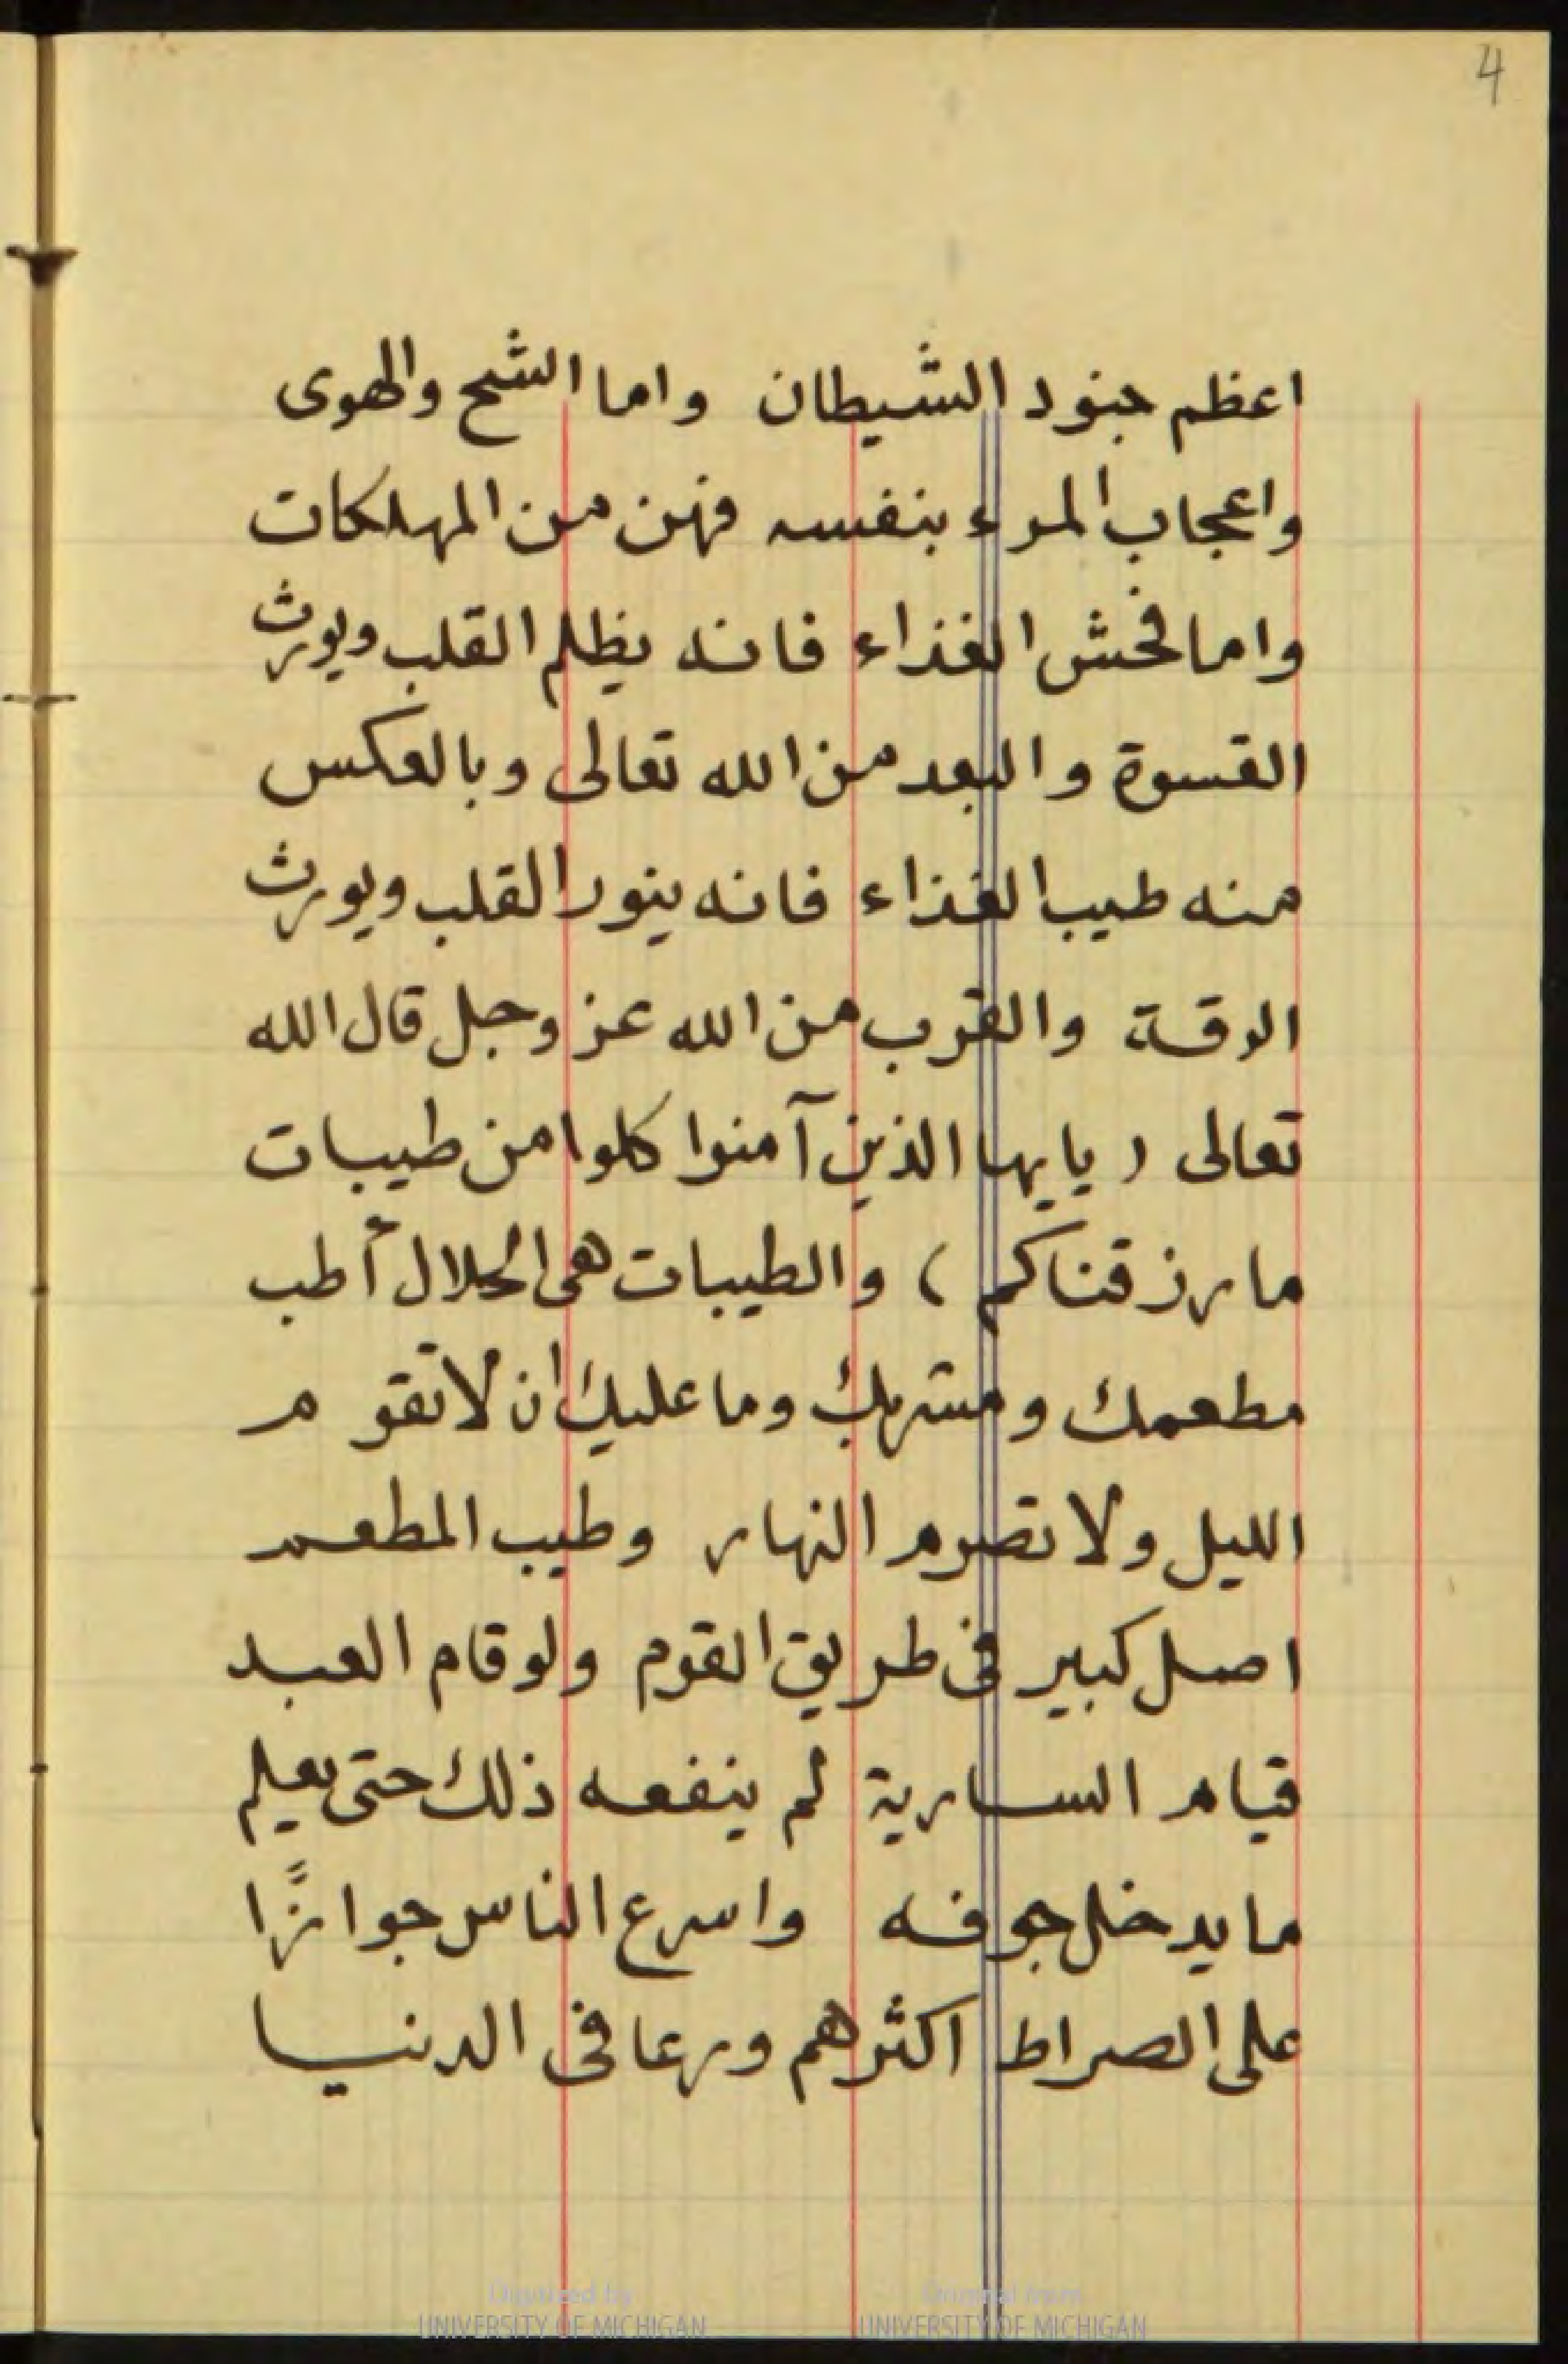 4
اعظم جنود الشيطان واما الشح والهوى
واعجاب المرء بنفسه فهن من المهلكات
واما فحش الغذاء فانه يظلم القلب ويورث
القسوة والبعد من الله تعالى وبالعكس
منه طيب الغذاء فانه ينور القلب ويورث
الرقة والقرب من الله عز وجل قال الله
تعالى ( يايها الذين آمنوا كلوا من طيبات
ما رزقناكم ) والطيبات هى الحلال أطب
مطعمك ومشربك وما عليك ان لا تقوم
الليل ولا تصوم النهار وطيب المطعم
اصل كبير فى طريق القوم ولو قام العبد
قيام السارية لم ينفعه ذلك حتى يعلم
ما يدخل جوفه واسرع الناس جوازًا
على الصراط اكثرهم ورعا فى الدنيا
Digitized by
UNIVERSITY OF MICHIGAN
Original from
UNIVERSITY OF MICHIGAN